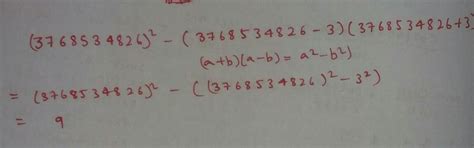 (3768534826)² - (3768534826-3)(3768534826+3)
(a+b)(a-b) = a²-b²)
= (3768534826)² - ((3768534826)² - 3²)
= 9